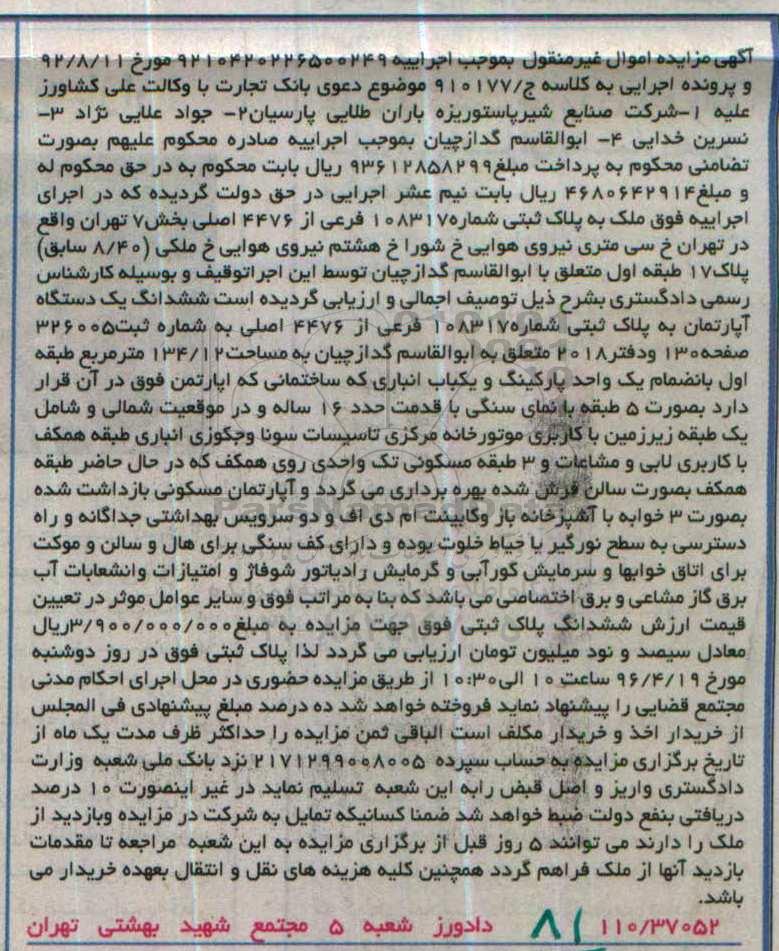 آگهی مزایده اموال غیرمنقول بموجب اجراییه ۹۲۱۰۴۲۰۲۲۶۵۰۰۲۴۹ مورخ ۹۲/۸/۱۱
و پرونده اجرایی به کلاسه ج/۹۱۰۱۷۷ موضوع دعوی بانک تجارت با وکالت علی کشاورز
علیه ۱-شرکت صنایع شیرپاستوریزه باران طلایی پارسیان۲- جواد علایی نژاد ۳-
نسرین خدایی ۴- ابوالقاسم گدازچیان بموجب اجراییه صادره محکوم علیهم بصورت
تضامنی محکوم به پرداخت مبلغ۹۳۶۱۲۸۵۸۲۹۹ ریال بابت محکوم به در حق محکوم له
و مبلغ۴۶۸۰۶۴۲۹۱۴ ریال بابت نیم عشر اجرایی در حق دولت گردیده که در اجرای
اجراییه فوق ملک به پلاک ثبتی شماره۱۰۸۳۱۷ فرعی از ۴۴۷۶ اصلی بخش۷ تهران واقع
در تهران خ سی متری نیروی هوایی خ شورا خ هشتم نیروی هوایی خ ملکی (۸/۴۰ سابق)
پلاک۱۷ طبقه اول متعلق با ابوالقاسم گدازچیان توسط این اجراتوقیف و بوسیله کارشناس
رسمی دادگستری بشرح ذیل توصیف اجمالی و ارزیابی گردیده است ششدانگ یک دستگاه
آپارتمان به پلاک ثبتی شماره۱۰۸۳۱۷ فرعی از ۴۴۷۶ اصلی به شماره ثبت۳۲۶۰۰۵
صفحه۱۳۰ ودفتر۲۰۱۸ متعلق به ابوالقاسم گدازچیان به مساحت۱۳۴/۱۲ مترمربع طبقه
اول بانضمام یک واحد پارکینگ و یکباب انباری که ساختمانی که اپارتمن فوق در آن قرار
دارد بصورت ۵ طبقه با نمای سنگی با قدمت حدد ۱۶ ساله و در موقعیت شمالی و شامل
یک طبقه زیرزمین با کاربری موتورخانه مرکزی تاسیسات سونا وجکوزی انباری طبقه همکف
با کاربری لابی و مشاعات و ۳ طبقه مسکونی تک واحدی روی همکف که در حال حاضر طبقه
همکف بصورت سالن فرش شده بهره برداری می گردد و آپارتمان مسکونی بازداشت شده
بصورت ۳ خوابه با آشپزخانه باز وکابینت ام دی اف و دو سرویس بهداشتی جداگانه و راه
دسترسی به سطح نورگیر یا حیاط خلوت بوده و دارای کف سنگی برای هال و سالن و موکت
برای اتاق خوابها و سرمایش کورآبی و گرمایش رادیاتور شوفاژ و امتیازات وانشعابات آب
برق گاز مشاعی و برق اختصاصی می باشد که بنا به مراتب فوق و سایر عوامل موثر در تعیین
قیمت ارزش ششدانگ پلاک ثبتی فوق جهت مزایده به مبلغ۳/۹۰۰/۰۰۰/۰۰۰ریال
معادل سیصد و نود میلیون تومان ارزیابی می گردد لذا پلاک ثبتی فوق در روز دوشنبه
مورخ ۹۶/۴/۱۹ ساعت ۱۰ الی۱۰:۳۰ از طریق مزایده حضوری در محل اجرای احکام مدنی
مجتمع قضایی را پیشنهاد نماید فروخته خواهد شد ده درصد مبلغ پیشنهادی فی المجلس
از خریدار اخذ و خریدار مکلف است الباقی ثمن مزایده را حداکثر ظرف مدت یک ماه از
تاریخ برگزاری مزایده به حساب سپرده ۲۱۷۱۲۹۹۰۰۸۰۰۵ نزد بانک ملی شعبه وزارت
دادگستری واریز و اصل قبض رابه این شعبه تسلیم نماید در غیر اینصورت ۱۰ درصد
دریافتی بنفع دولت ضبط خواهد شد ضمنا کسانیکه تمایل به شرکت در مزایده وبازدید از
ملک را دارند می توانند ۵ روز قبل از برگزاری مزایده به این شعبه مراجعه تا مقدمات
بازدید آنها از ملک فراهم گردد همچنین کلیه هزینه های نقل و انتقال بعهده خریدار می
باشد.
۱۱۰/۳۷۰۵۲ ۸۱ دادورز شعبه ۵ مجتمع شهید بهشتی تهران